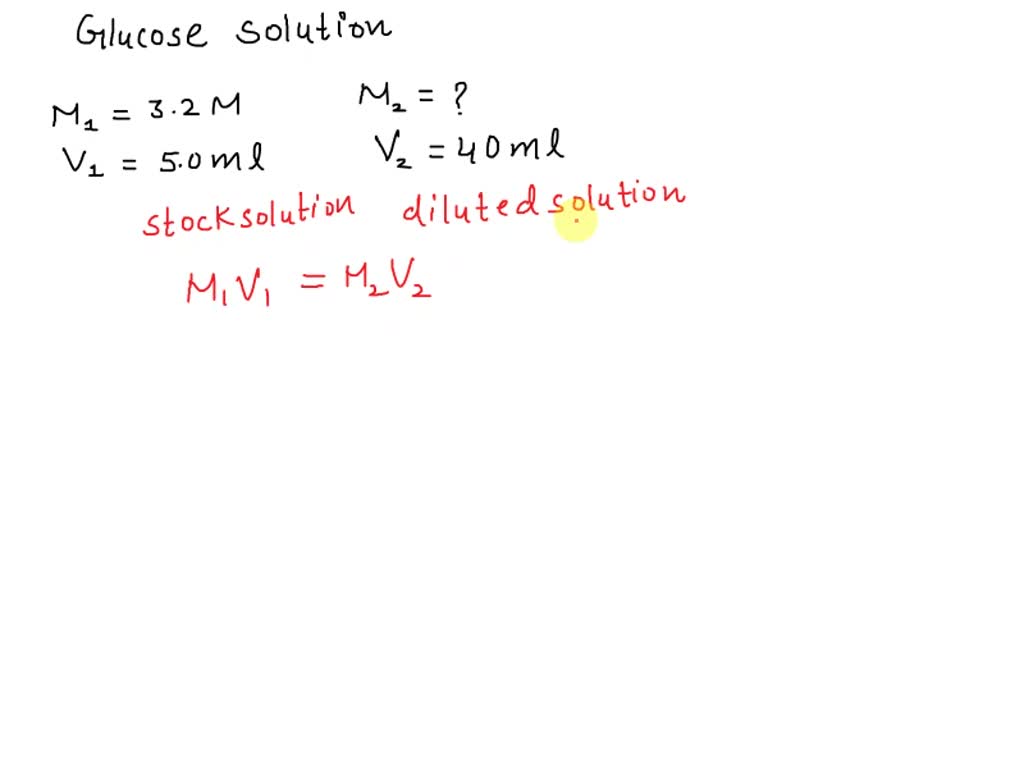 Glucose solution
M₁ = 3.2 M M₂ = ?
V₁ = 5.0 ml V₂ = 40 ml
stock solution diluted solution
M₁V₁ = M₂V₂